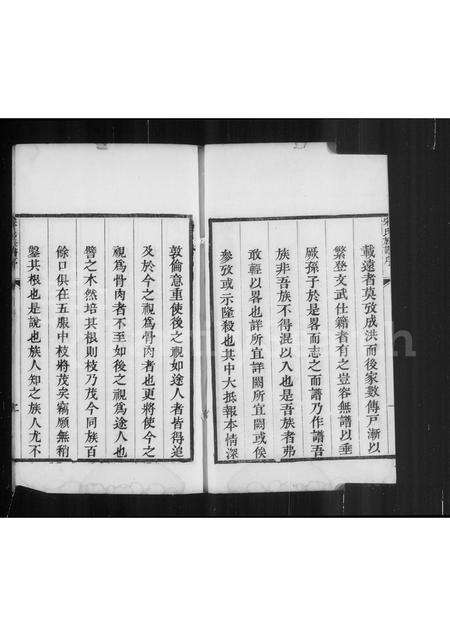 載遠者莫攷成洪而後家數傳戸漸以
繁登文武仕籍者有之豈容無譜以垂
厥孫子於是畧而志之而譜乃作譜吾
族非吾族不得混以入也是吾族者弗
敢輕以畧也詳所宜詳闕所宜闕或俟
參攷或示隆殺也其中大抵報本情深
敦倫意重使後之視如途人者皆得追
及於今之視為骨肉者也更將使今之
視為骨肉者不至如後之視為途人也
譬之木然培其根則枝乃茂今同族百
餘口俱在五服中枝將茂矣竊願無稍
鑿其根也是說也族人知之族人尤不